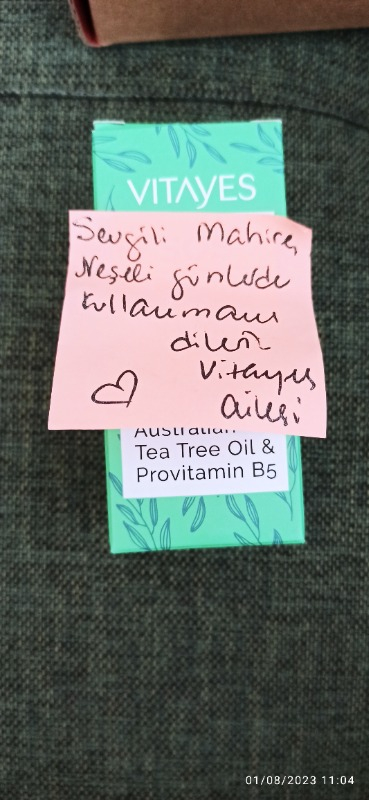 VITAYES
Sevgili Mahire,
Neşeli günlerde
kullanmanı
dileriz
Vitayes
Ailesi
Australian
Tea Tree Oil &
Provitamin B5
01/08/2023 11:04